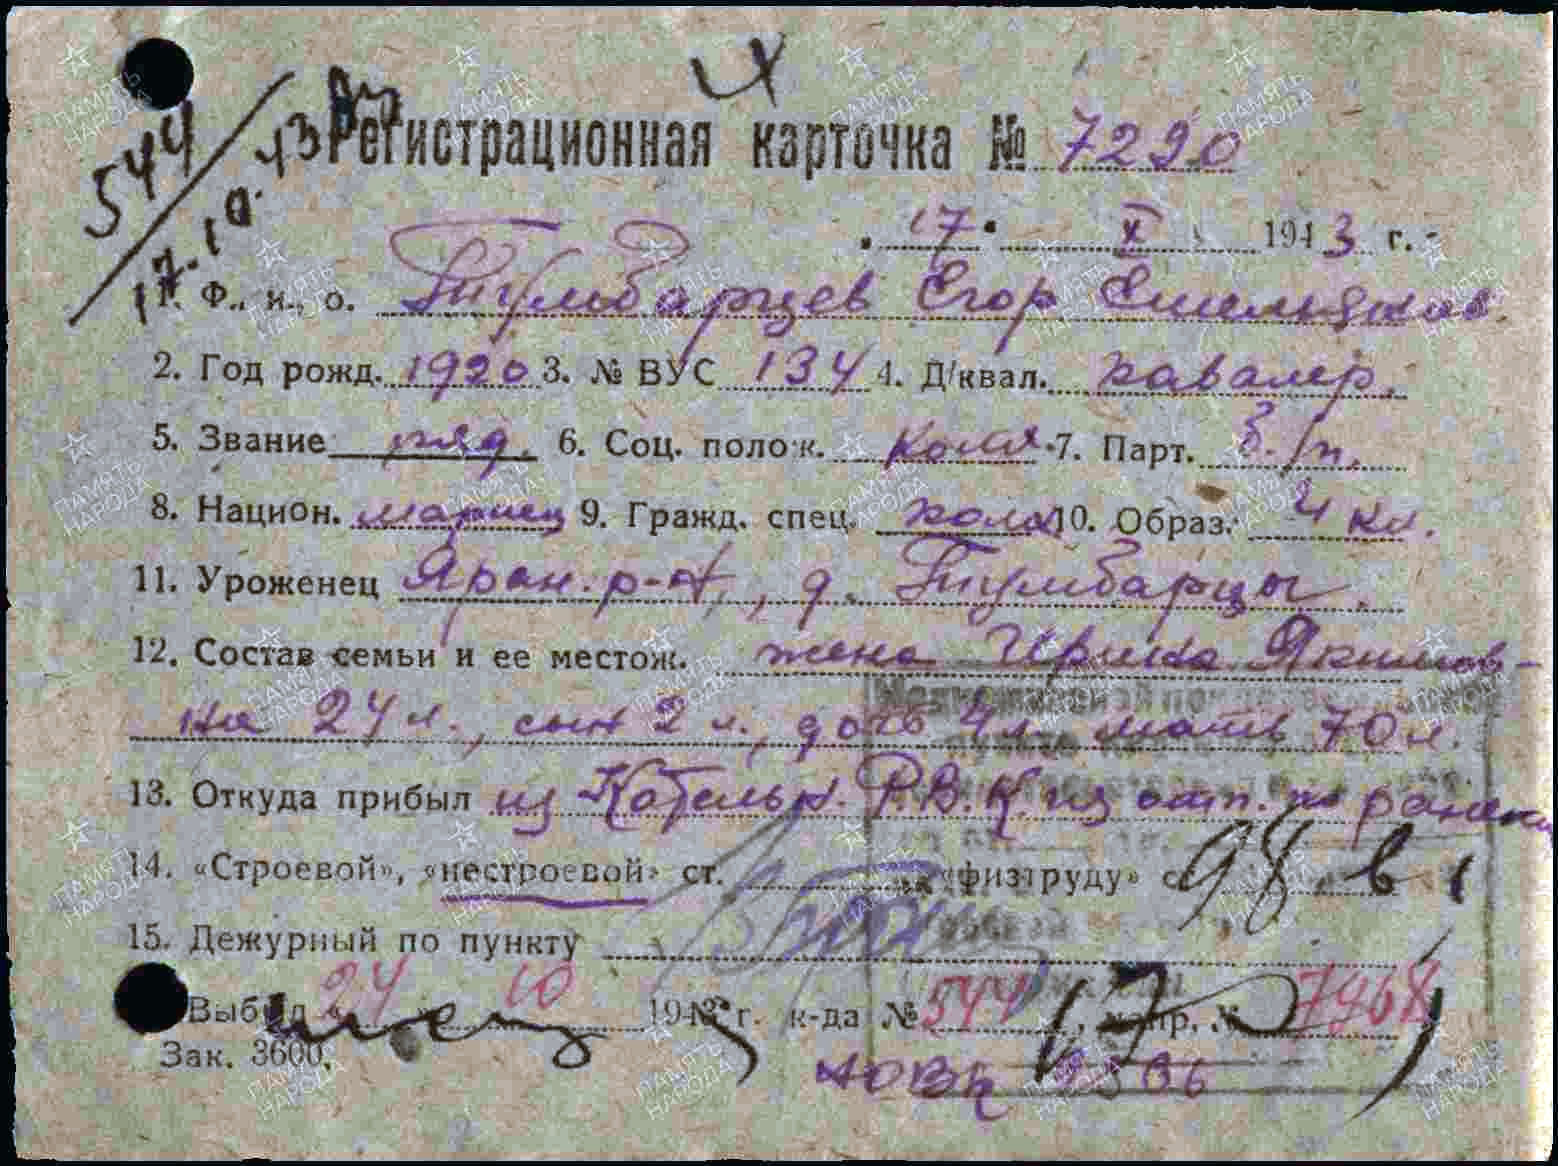 544
17.10.43
Регистрационная карточка № 7290
"17" X 1943 г.
1. Ф., и., о. Тулбарцев Егор Емельянов.
2. Год рожд. 1920 3. № ВУС 134 4. Д/квал. кавалер.
5. Звание ряд. 6. Соц. полож. колх. 7. Парт. б./п.
8. Национ. мариец 9. Гражд. спец. колх 10. Образ. 4 кл.
11. Уроженец Яран. р-н, д. Тумбарцы.
12. Состав семьи и ее местож. жена Ирина Якимов-
на 24 л., сын 2 л., дочь 4 л. мать 70 л.
13. Откуда прибыл из Котельн. Р.В.К. из отп. по ранен
14. «Строевой», «нестроевой» ст. «физтруду» с 98 в
15. Дежурный по пункту
Выбыл 24 10 1943 г. к-да № 544 7968
Зак. 3600.
ПАМЯТЬ НАРОДА